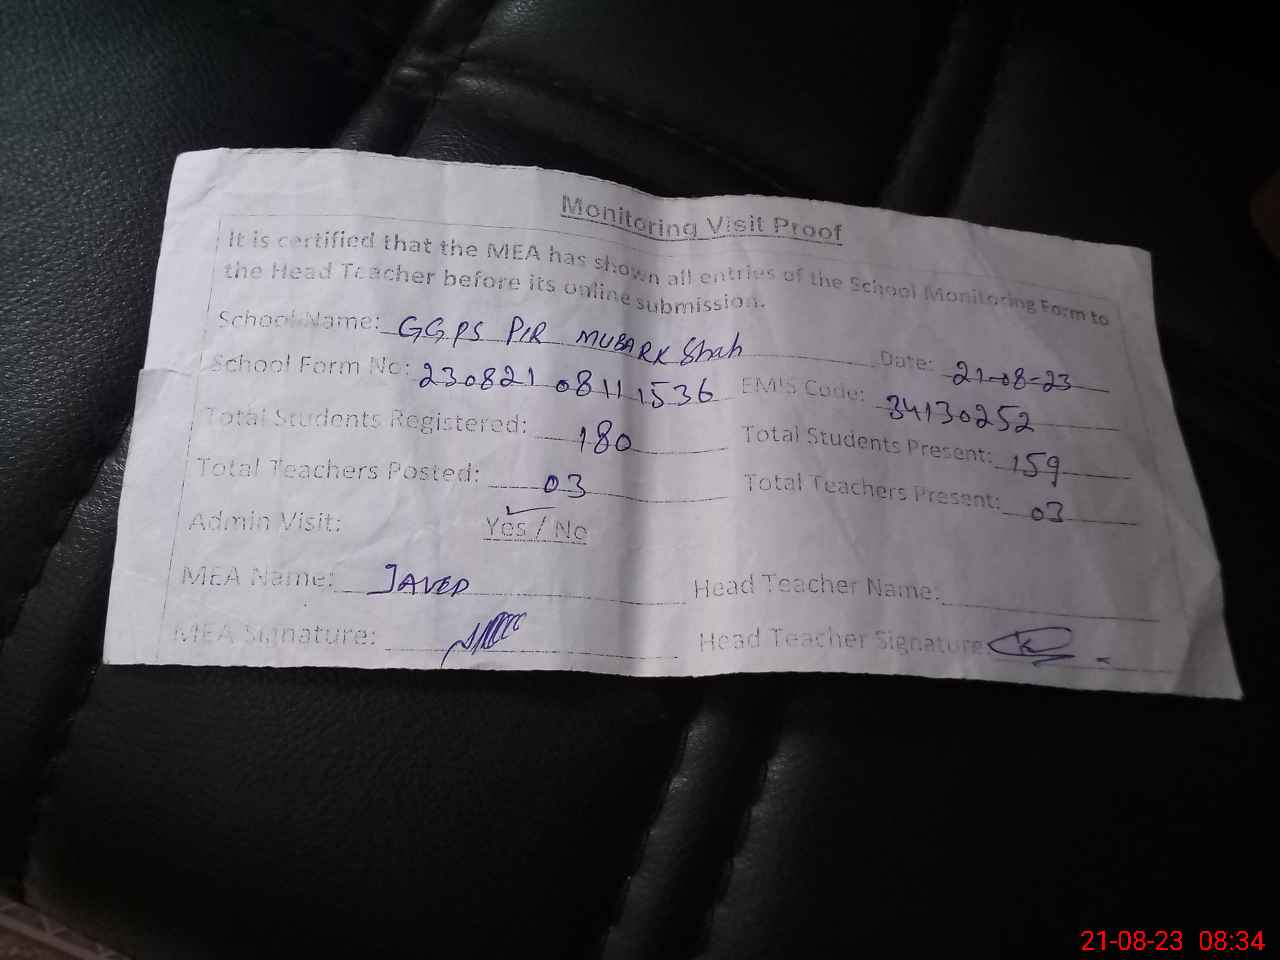 Monitoring Visit Proof
It is certified that the MEA has shown all entries of the School Monitoring Form to
the Head Teacher before its online submission.
School Name: GGPS PIR MUBARK Shah Date: 21-08-23
School Form No: 230821 0811 1536 EMIS Code: 34130252
Total Students Registered: 180 Total Students Present: 159
Total Teachers Posted: 03 Total Teachers Present: 03
Admin Visit: Yes / No
MEA Name: JAVED Head Teacher Name:
MEA Signature: Head Teacher Signature
21-08-23 08:34